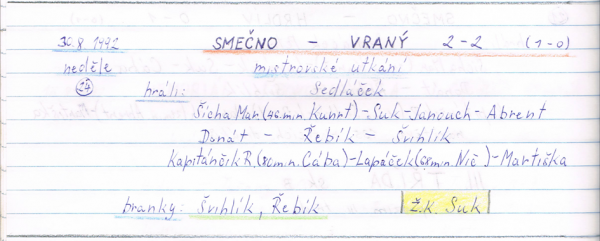 30.8.1992 SMEČNO - VRANÝ 2-2 (1-0)
neděle mistrovské utkání
hráli: Sedláček
Šícha Mar.(46.min.Kunrt)-Suk-Janouch-Abrent
Donát - Řebík - Švihlík
Kapitánčik R.(80.min.Cába)-Lapáček(68.min.Nič.)-Martiška
branky: Švihlík, Řebík Ž.K. Suk